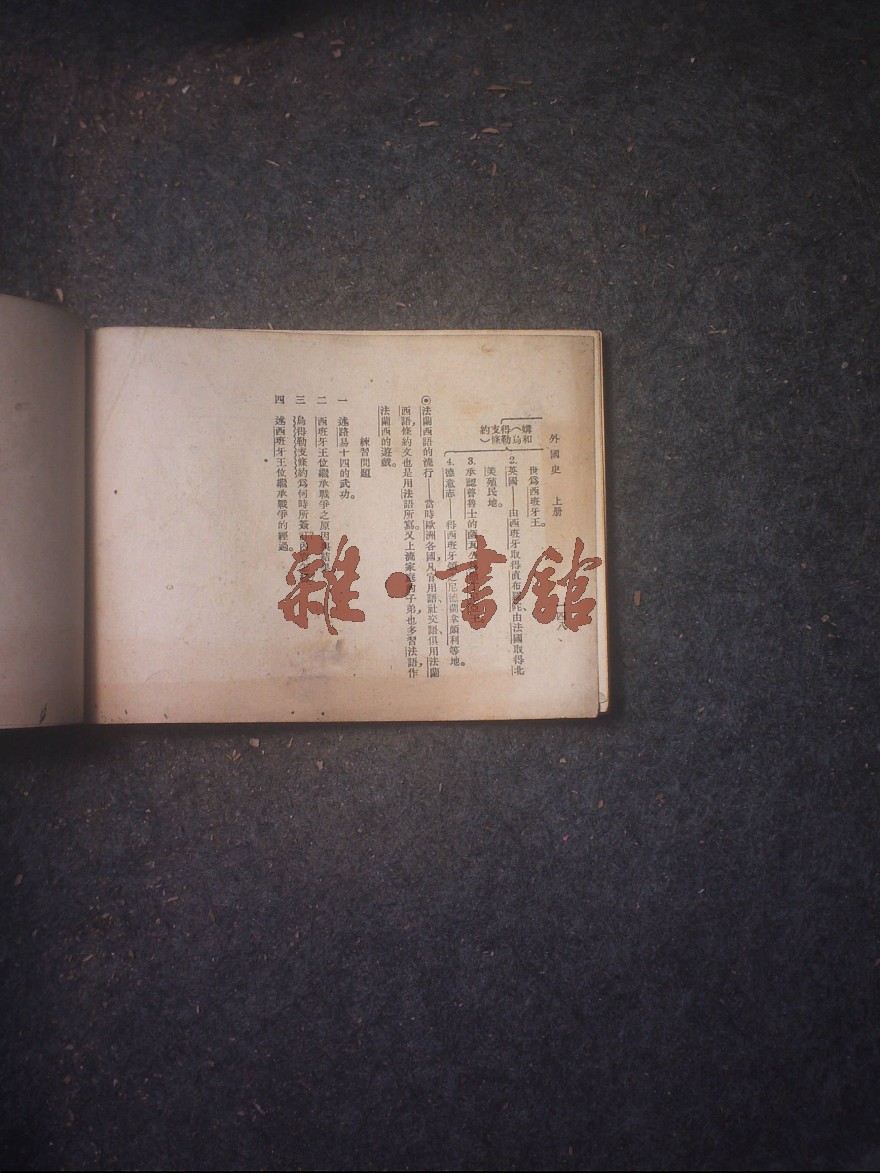 外國史 上册 一四八
媾和(烏得勒支條約)
世爲西班牙王。
2.英國——由西班牙取得直布羅陀由法國取得北
美殖民地。
3.承認普魯士的薩瓦公
4.德意志——得西班牙領之尼德蘭拿頗利等地。
◉法蘭西語的流行——當時歐洲各國,凡官用語、社交語、俱用法蘭
西語,條約文也是用法語所寫。又上流家庭的子弟,也多習法語,作
法蘭西的遊戲。
練習問題
一 述路易十四的武功。
二 西班牙王位繼承戰爭之原因與結果
三 烏得勒支條約爲何時所簽訂內
四 述西班牙王位繼承戰爭的經過。
雜·書館